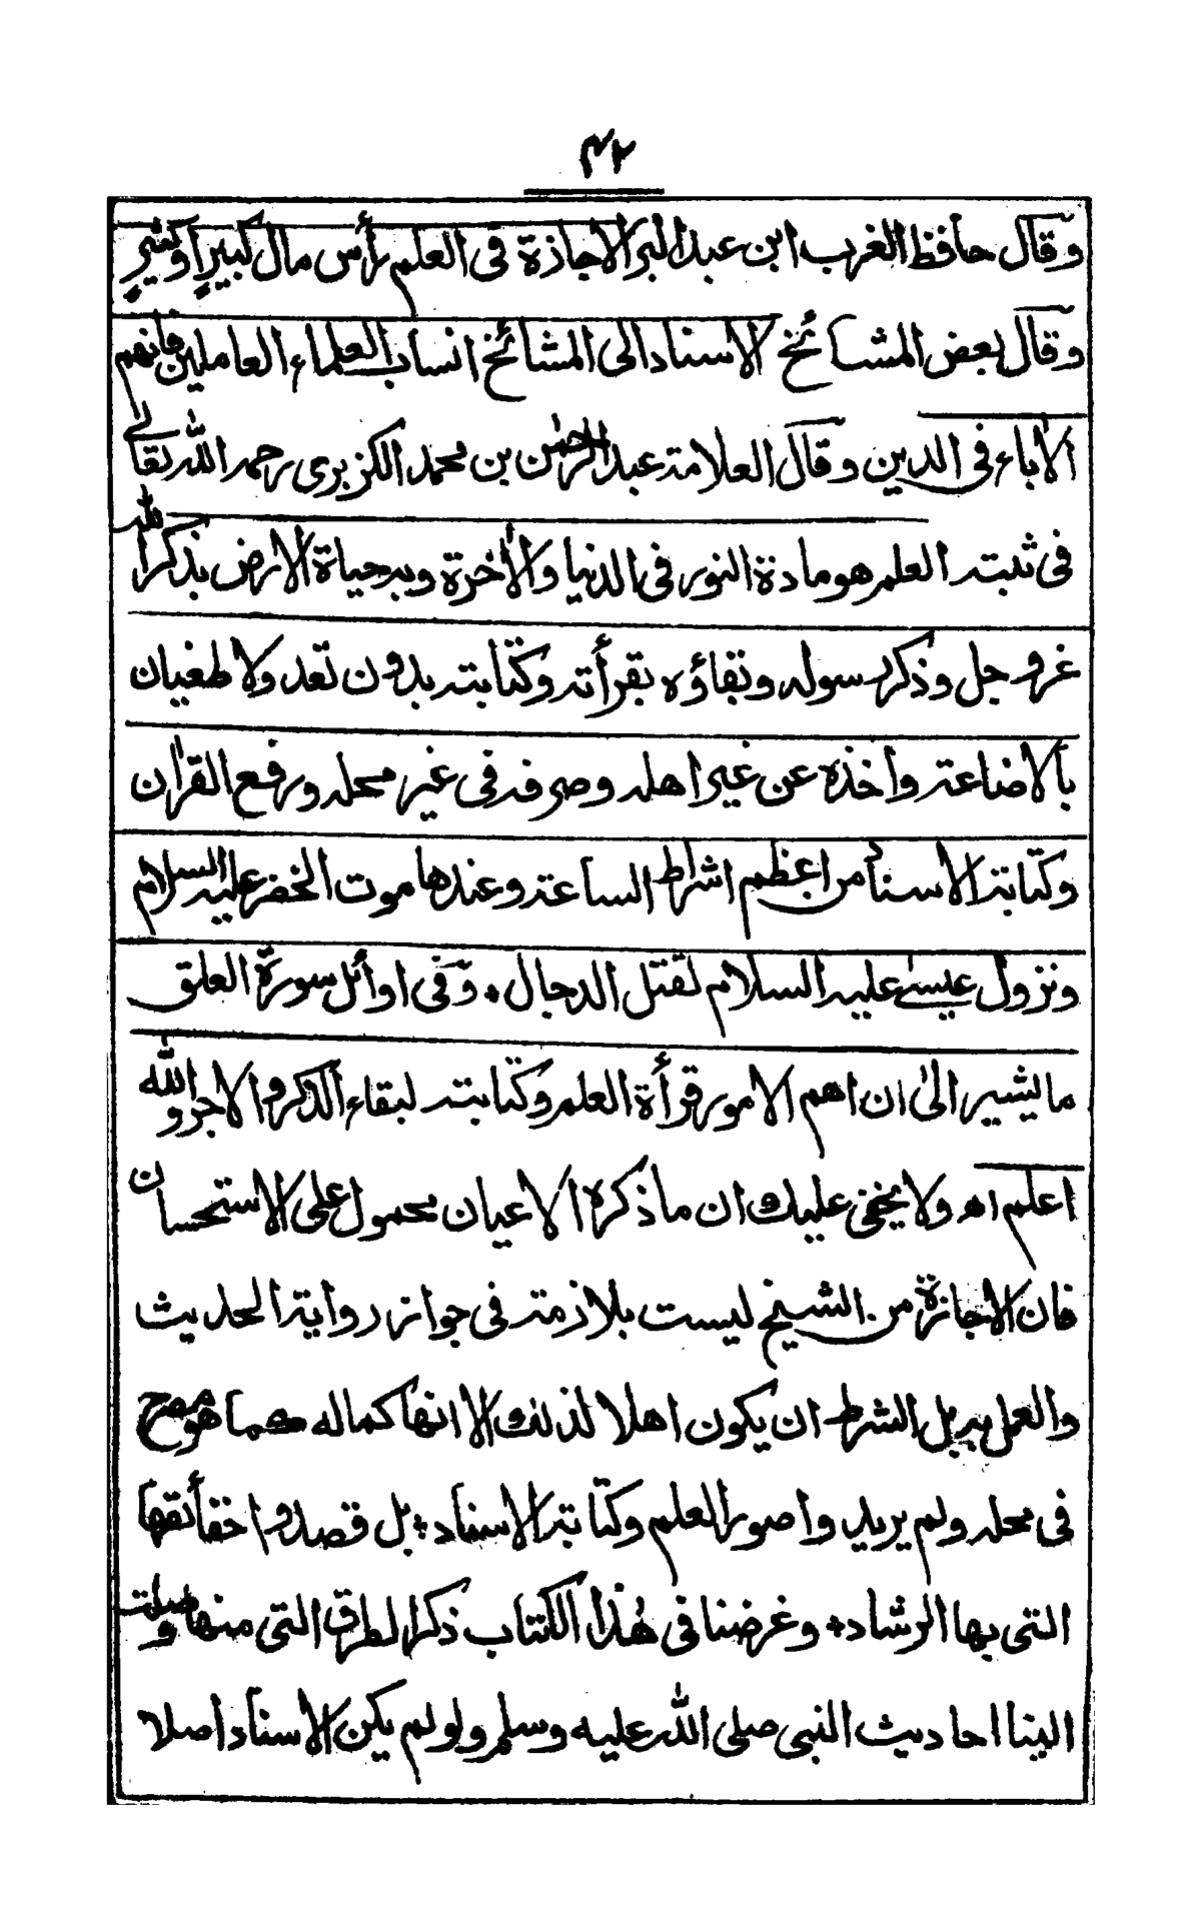 ٤٢
وقال حافظ الغرب ابن عبد البر الاجازة فى العلم رأس مال كبير او كثير
وقال بعض المشائخ الاسناد الى المشائخ انساب العلماء العاملين فانهم
الأباء فى الدين وقال العلامة عبد الرحمٰن بن محمد الكزبرى رحمه الله تعالے
فى ثبته العلم هو مادة النور فى الدنيا والأخرة وبه حياة الارض بذكر الله
عز وجل وذكر رسوله وبقاؤه بقرأته وكتابته بدون تعد ولا طغيان
بالاضاعة واخذه عن غير اهله وصرفه فى غير محله ورفع القرأن
وكتابة الاسناد من اعظم اشراط الساعة وعندها موت الخضر عليه السلام
ونزول عيسےٰ عليه السلام لقتل الدجال ، وفى اوائل سورة العلق
ما يشير الىٰ ان اهم الامور قرأة العلم وكتابته لبقاء الذكر والاجر والله
اعلم اھ ولا يخفى عليك ان ما ذكره الاعيان محمول على الاستحسان
فان الاجازة من الشيخ ليست بلازمة فى جواز رواية الحديث
والعمل به بل الشرط ان يكون اهلا لذلك الا انها كماله كما هو مصرح
فى محله ولم يريدوا صور العلم وكتابة الاسناد ، بل قصدوا حقائقها
التى بها الرشاد ، وغرضنا فى هٰذا الكتاب ذكر الطرق التى منها وصلت
الينا احاديث النبى صلى الله عليه وسلم ولو لم يكن الاسناد اصلا